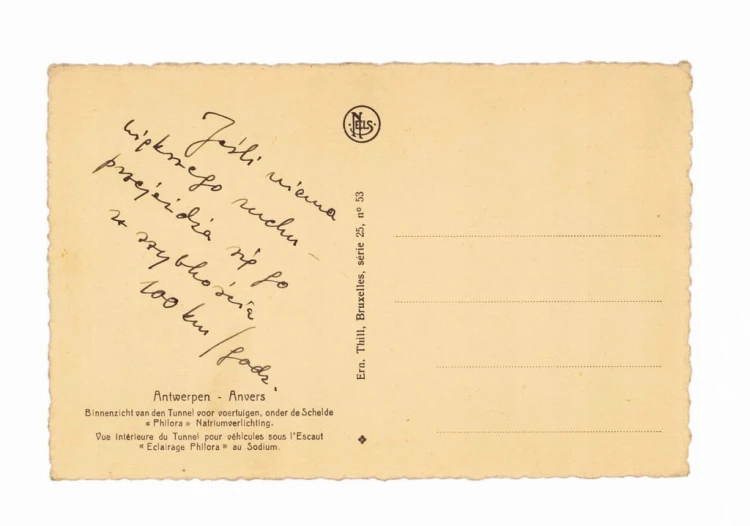 Jeśli niema
większego ruchu –
przejeżdża się go
z szybkością
100 km/godz.
NELS
Ern. Thill, Bruxelles, série 25, nº 53
Antwerpen - Anvers
Binnenzicht van den Tunnel voor voertuigen, onder de Schelde
« Philora » Natriumverlichting.
Vue intérieure du Tunnel pour véhicules sous l'Escaut
« Eclairage Philora » au Sodium.